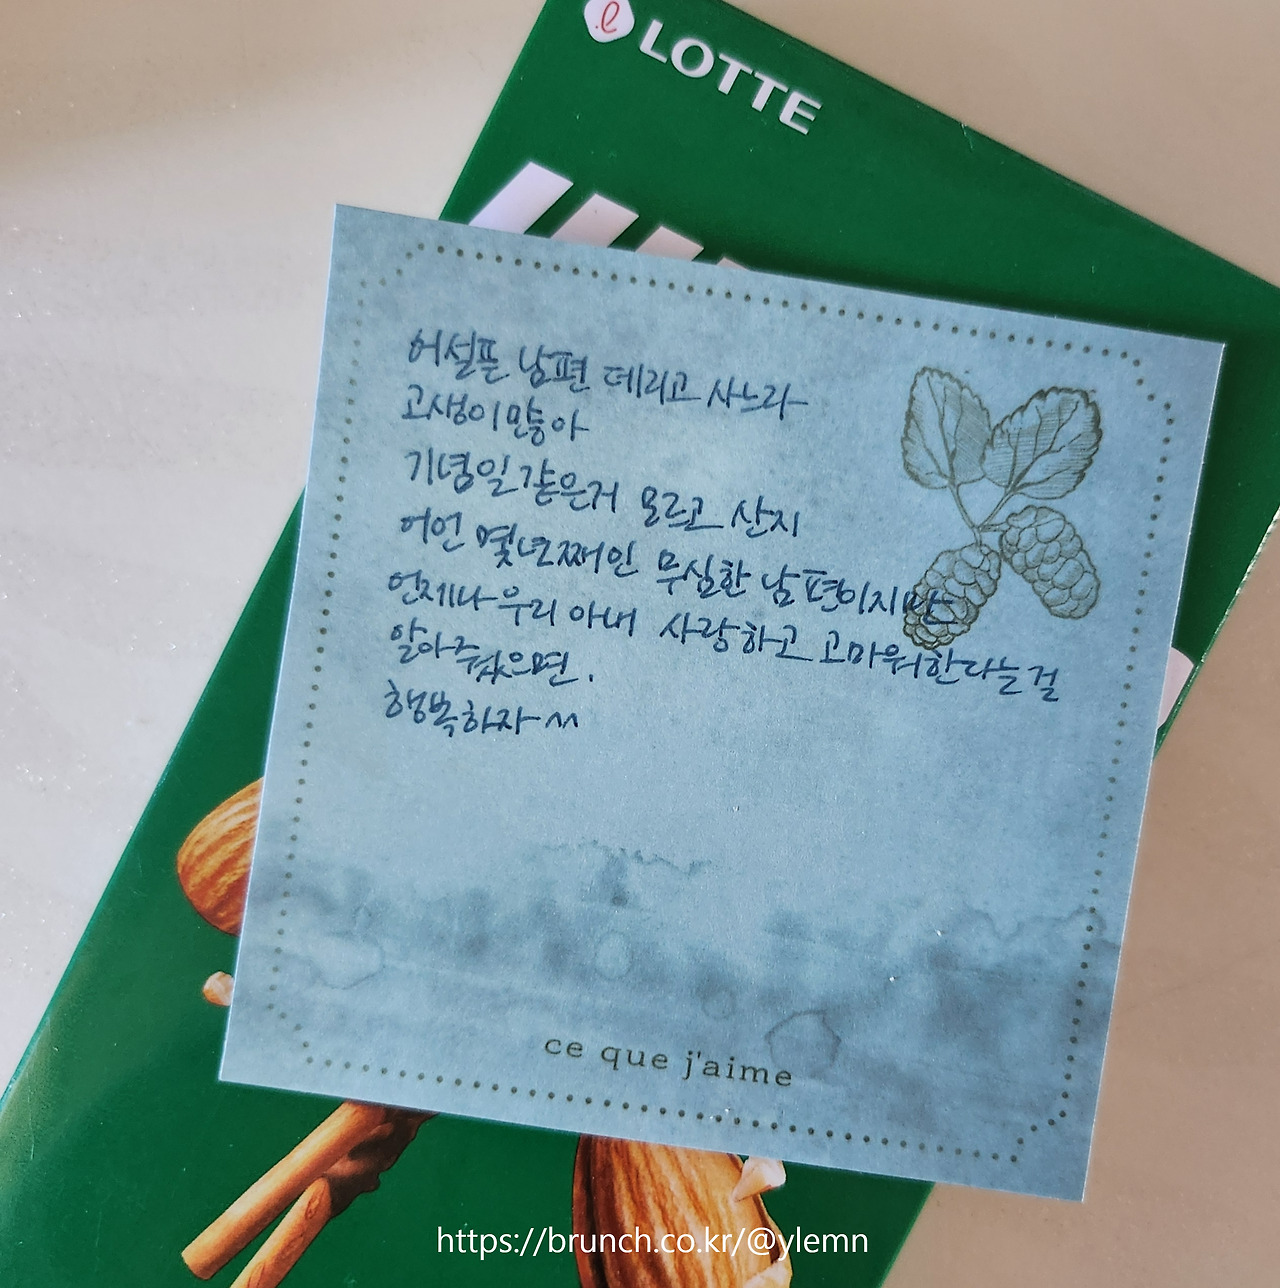 LOTTE
어설픈 남편 데리고 사느라
고생이 많아
기념일 같은거 모르고 산지
어언 몇년째인 무심한 남편이지만
언제나 우리 아내 사랑하고 고마워한다는걸
알아줬으면.
행복하자~^^
ce que j'aime
https://brunch.co.kr/@ylemn